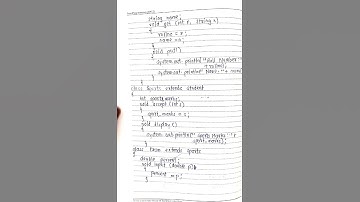 string name;
void get (int r, string n)
{
rollno = r;
name = n;
}
void put()
{
system.out.println("Roll Number:"
+ rollno);
system.out.println("Name:" + name
}
}
class Sports extends student
{
int sport_marks;
void accept (int s)
{
sport_marks = s;
}
void display()
{
system.out.println("Sports Marks:" +
sport_marks);
}
}
class Exam extends sports
{
double percent;
void input (double p)
{
percent = p;
}